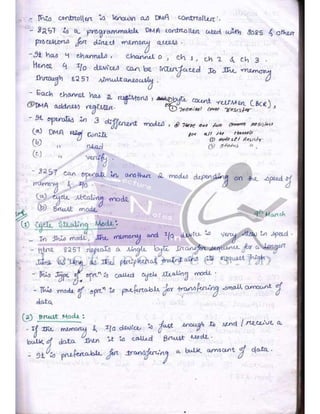 - This controller is known as DMA controller.
- 8257 is a programmable DMA controller used with 8085 & other
processors for direct memory access.
- It has 4 channels, channel 0, ch 1, ch 2 & ch 3.
Hence 4 I/O devices can be interfaced to the memory
through 8257 simultaneously.
- Each channel has 2 registers, byte count register (BCR),
② DMA address register. ① terminal count register
- It operates in 3 different modes, ③ There are two common registers
for all the channels
(a) DMA write ① mode set register
(b) " read ② status "
(c) " verify
- 8257 can operate in another 2 modes depending on the speed of
memory & I/O
(a) cycle stealing mode
(b) Brust mode
9th March
① Cycle Stealing Mode :
- In this mode, the memory and I/O device is very slow in speed.
Here 8257 repeats a single byte transfer sequence for a longer
time as long as the peripheral maintains its request high.
- This type of oprn is called cycle stealing mode.
- This mode of oprn is preferable for transfering small amount of
data
② Brust Mode :
- If the memory & I/O device is fast enough to send / receive a
bulk of data then it is called Brust Mode.
- It is preferable for transfering a bulk amount of data.